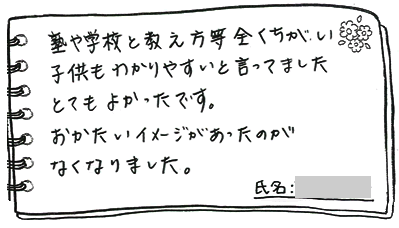 塾や学校と教え方等全くちがい
子供もわかりやすいと言ってました
とてもよかったです。
おかたいイメージがあったのが
なくなりました。
氏名: